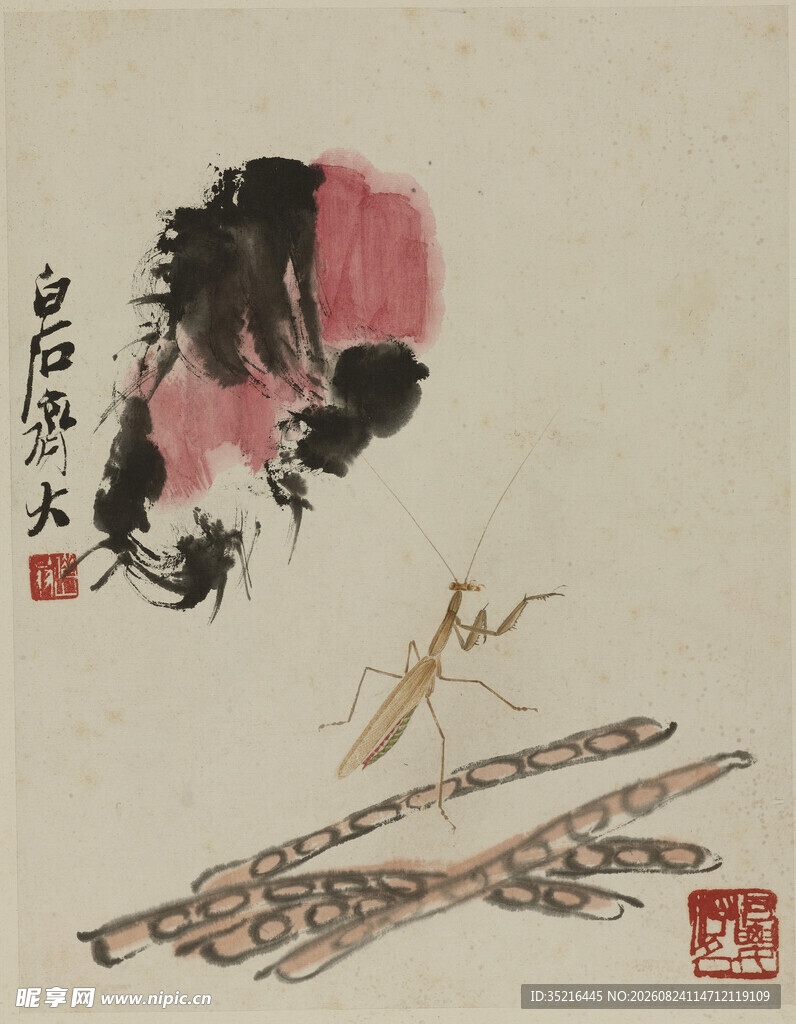 白石齊大
昵享网 www.nipic.cn
ID:35216445 NO:20260824114712119109